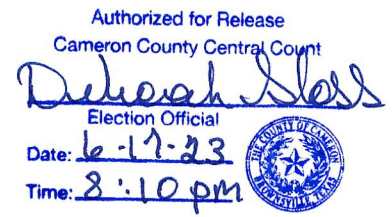 Authorized for Release
Cameron County Central Count
Deborah Gloss
Election Official
Date: 6-17-23
Time: 8:10 pm
THE COUNTY OF CAMERON
BROWNSVILLE, TEXAS